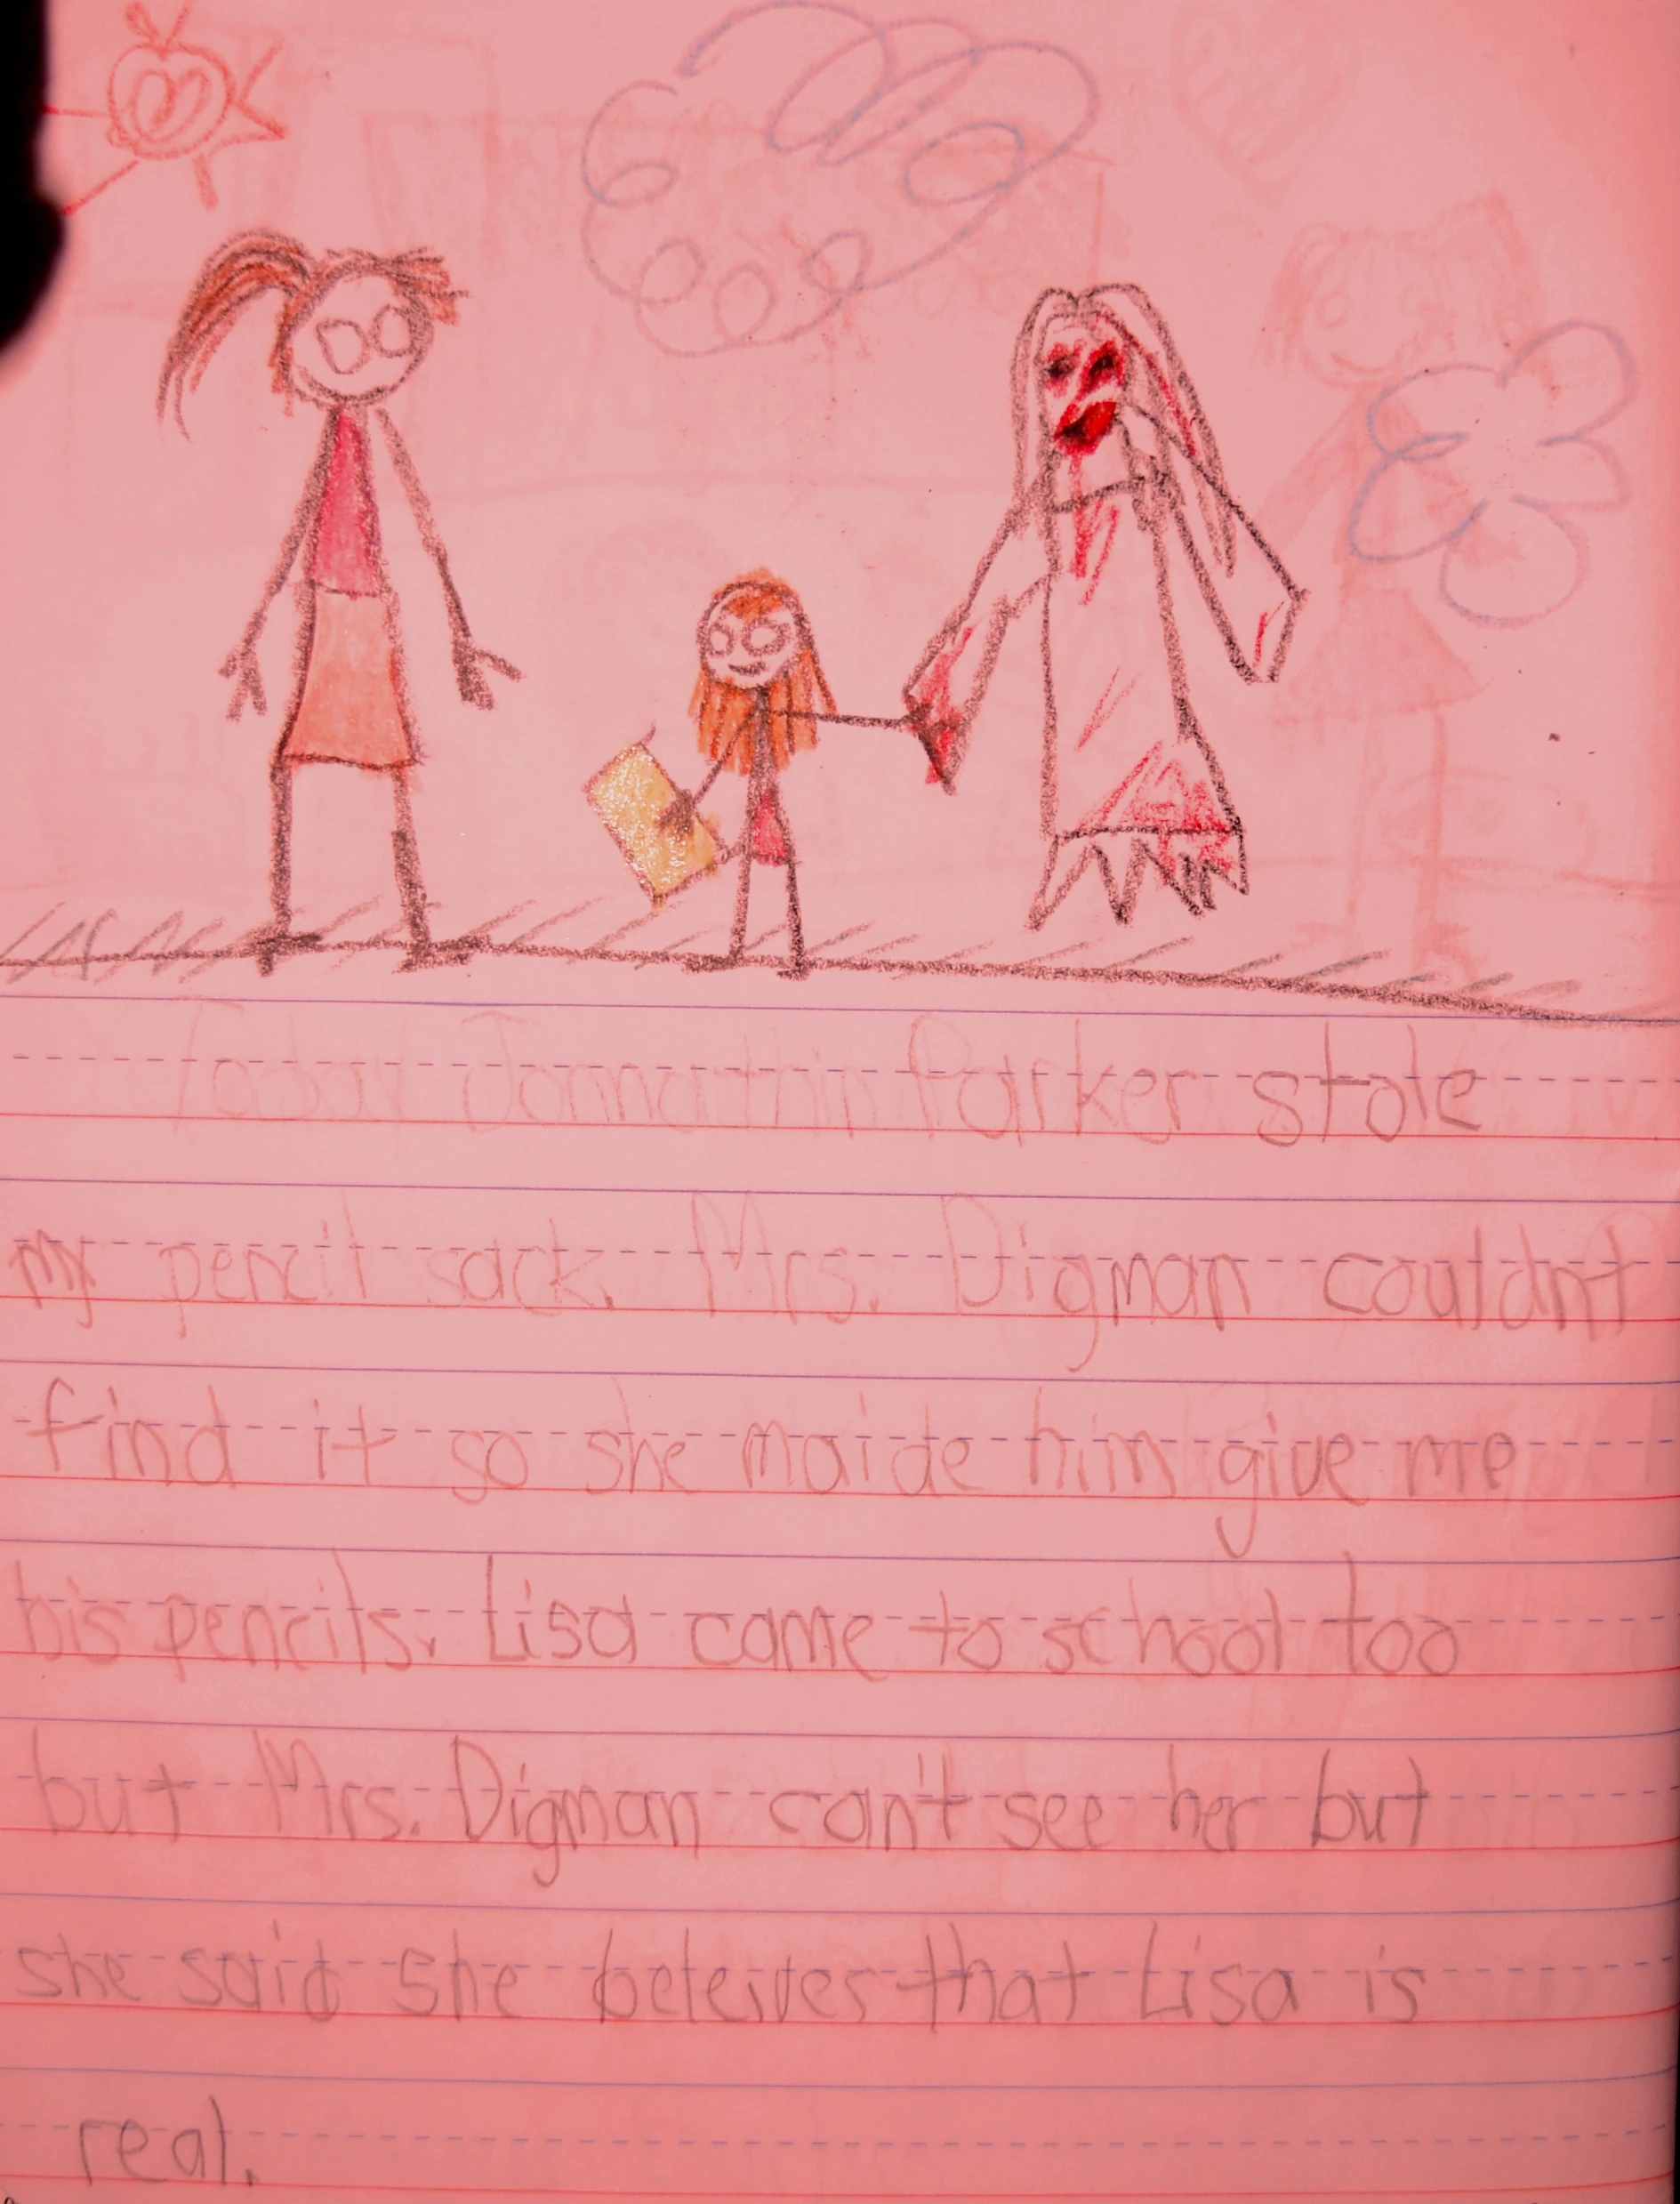 Today Jonnathin Parker stole
my pencil sack. Mrs. Digman couldnt
find it so she maide him give me
his pencils. Lisa came to school too
but Mrs. Digman can't see her but
she said she beleives that Lisa is
real.